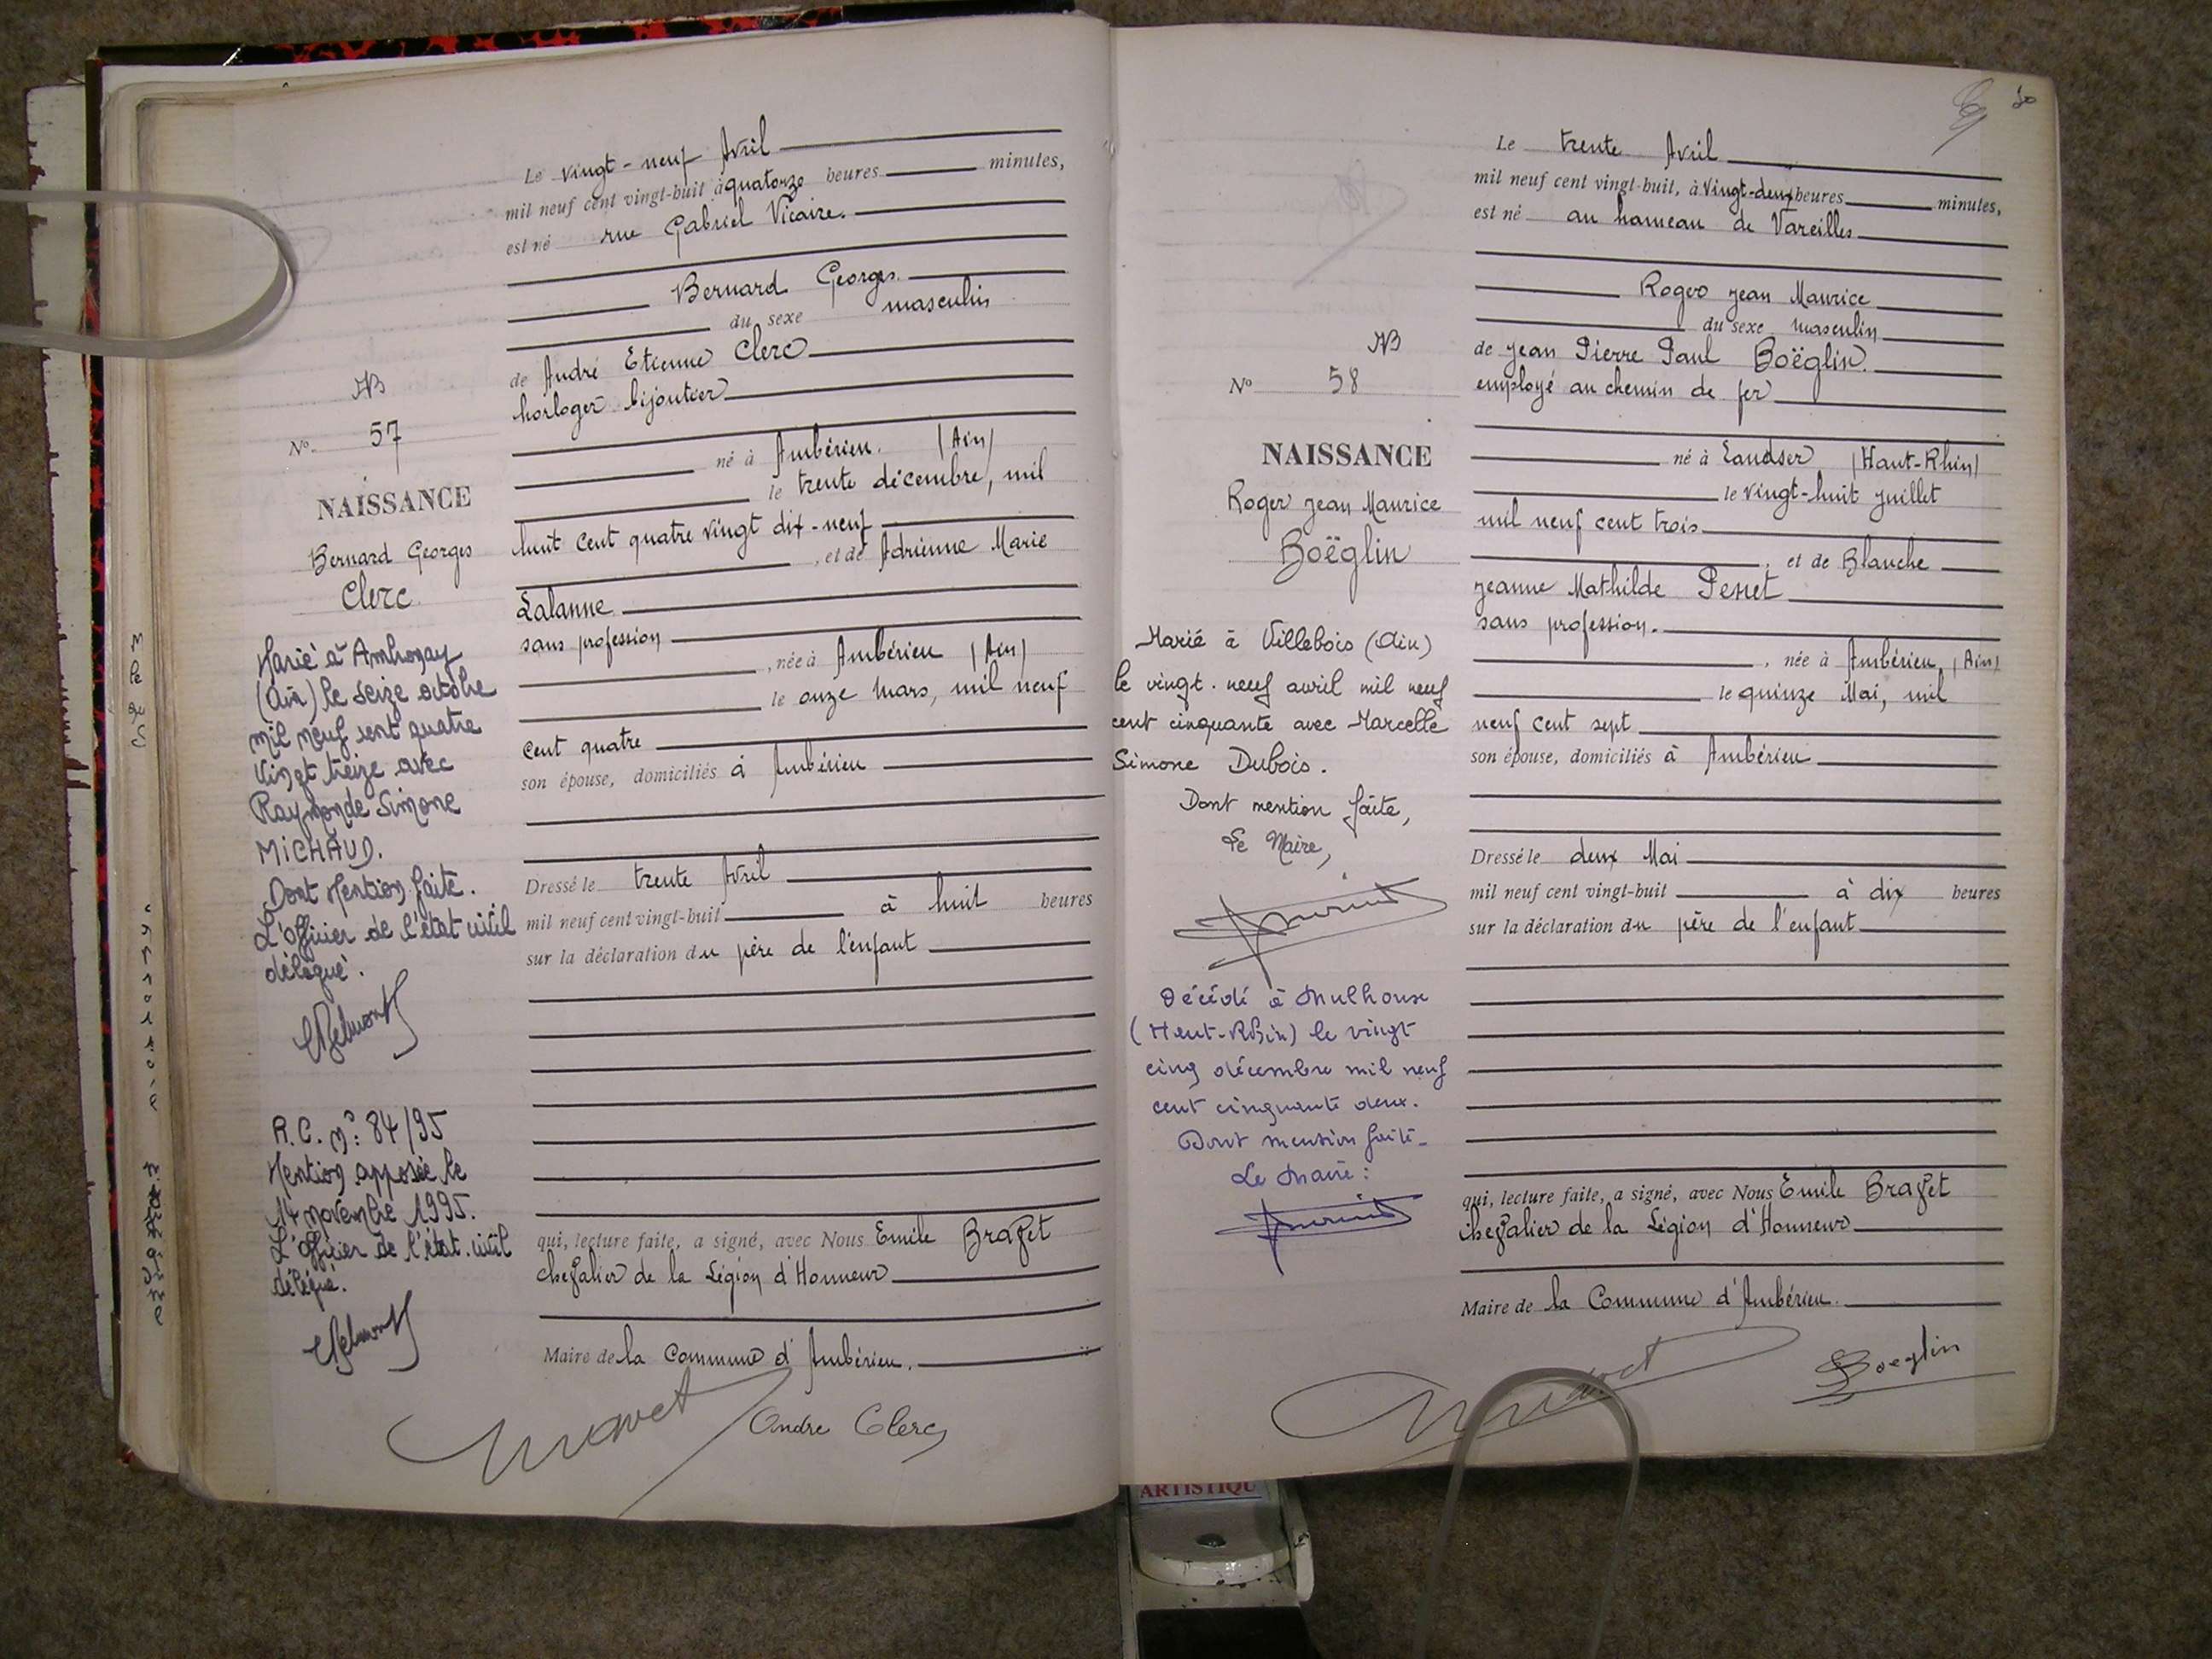 Le vingt-neuf Avril
mil neuf cent vingt-huit à quatorze heures minutes,
est né rue Gabriel Vicaire.
Bernard Georges
du sexe masculin
de André Etienne Clerc
horloger bijoutier
né à Ambérieu. (Ain)
le trente décembre, mil
huit cent quatre vingt dix-neuf
, et de Adrienne Marie
Lalanne
sans profession
, née à Ambérieu (Ain)
le onze Mars, mil neuf
cent quatre
son épouse, domiciliés à Ambérieu
Dressé le trente Avril
mil neuf cent vingt-huit à huit heures
sur la déclaration du père de l'enfant
qui, lecture faite, a signé, avec Nous Emile Bravet
chevalier de la Légion d'Honneur
Maire de la Commune d'Ambérieu.
Andre Clerc
No 57
NAISSANCE
Bernard Georges
Clerc
Marié à Ambronay
(Ain) le seize octobre
mil neuf cent quatre
vingt treize avec
Raymonde Simone
MICHAUD.
Dont Mention faite.
L'Officier de l'état civil
délégué.
R.C. n°: 84/95
Mention apposée le
14 novembre 1995.
L'Officier de l'état civil
délégué.
50
Le trente Avril
mil neuf cent vingt-huit, à vingt-deux heures minutes,
est né au hameau de Vareilles
Roger Jean Maurice
du sexe masculin
de Jean Pierre Paul Boëglin.
employé au chemin de fer
né à Landser (Haut-Rhin)
le vingt-huit juillet
mil neuf cent trois
, et de Blanche
Jeanne Mathilde Penet
sans profession.
, née à Ambérieu (Ain)
le quinze Mai, mil
neuf cent sept
son épouse, domiciliés à Ambérieu
Dressé le deux Mai
mil neuf cent vingt-huit à dix heures
sur la déclaration du père de l'enfant
qui, lecture faite, a signé, avec Nous Emile Bravet
chevalier de la Légion d'Honneur
Maire de la Commune d'Ambérieu.
Boeglin
No 58
NAISSANCE
Roger Jean Maurice
Boëglin
Marié à Villebois (Ain)
le vingt-neuf avril mil neuf
cent cinquante avec Marcelle
Simone Dubois.
Dont mention faite,
Le Maire,
Décédé à Mulhouse
(Haut-Rhin) le vingt
cinq décembre mil neuf
cent cinquante deux.
Dont mention faite-
Le Maire:
ARTISTIQU